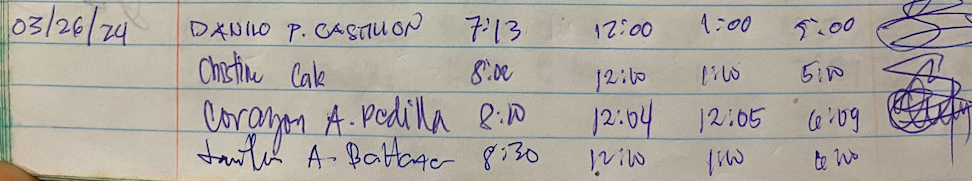 03/26/24 DANILO P. CASTILLON 7:13 12:00 1:00 5:00
Christine Cale 8:00 12:00 1:00 5:00
Corazon A. Padilla 8:10 12:04 12:05 6:09
A. 8:30 12:00 1:00 6:00